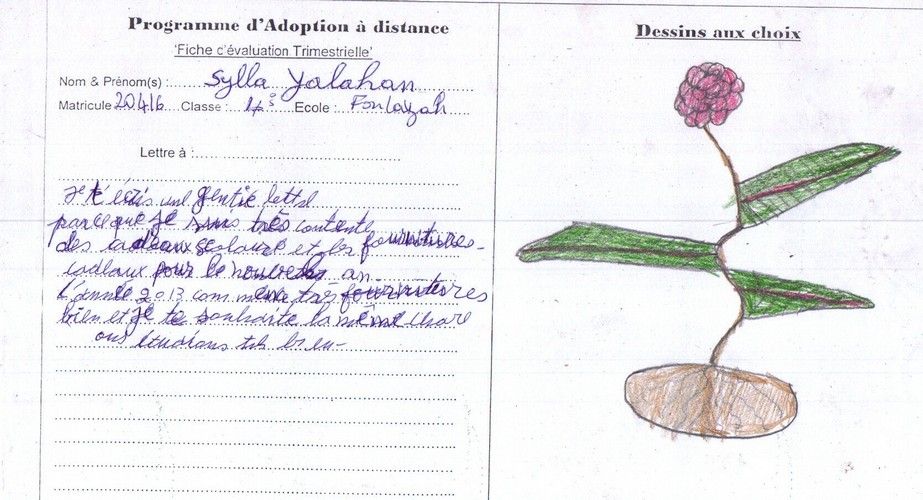 Programme d'Adoption à distance
'Fiche d'évaluation Trimestrielle'
Nom & Prénom(s) : Sylla Yalahan
Matricule 20416 Classe : Ecole :
Lettre à :
je t'écris une gentie lettre
parceque je suis très contente
des cadeaux scolaire et les fournitures
cadeaux pour le an
L'année 2013 très fournitures
bien et je te souhaite la même chose
ons étudions bien
Dessins aux choix